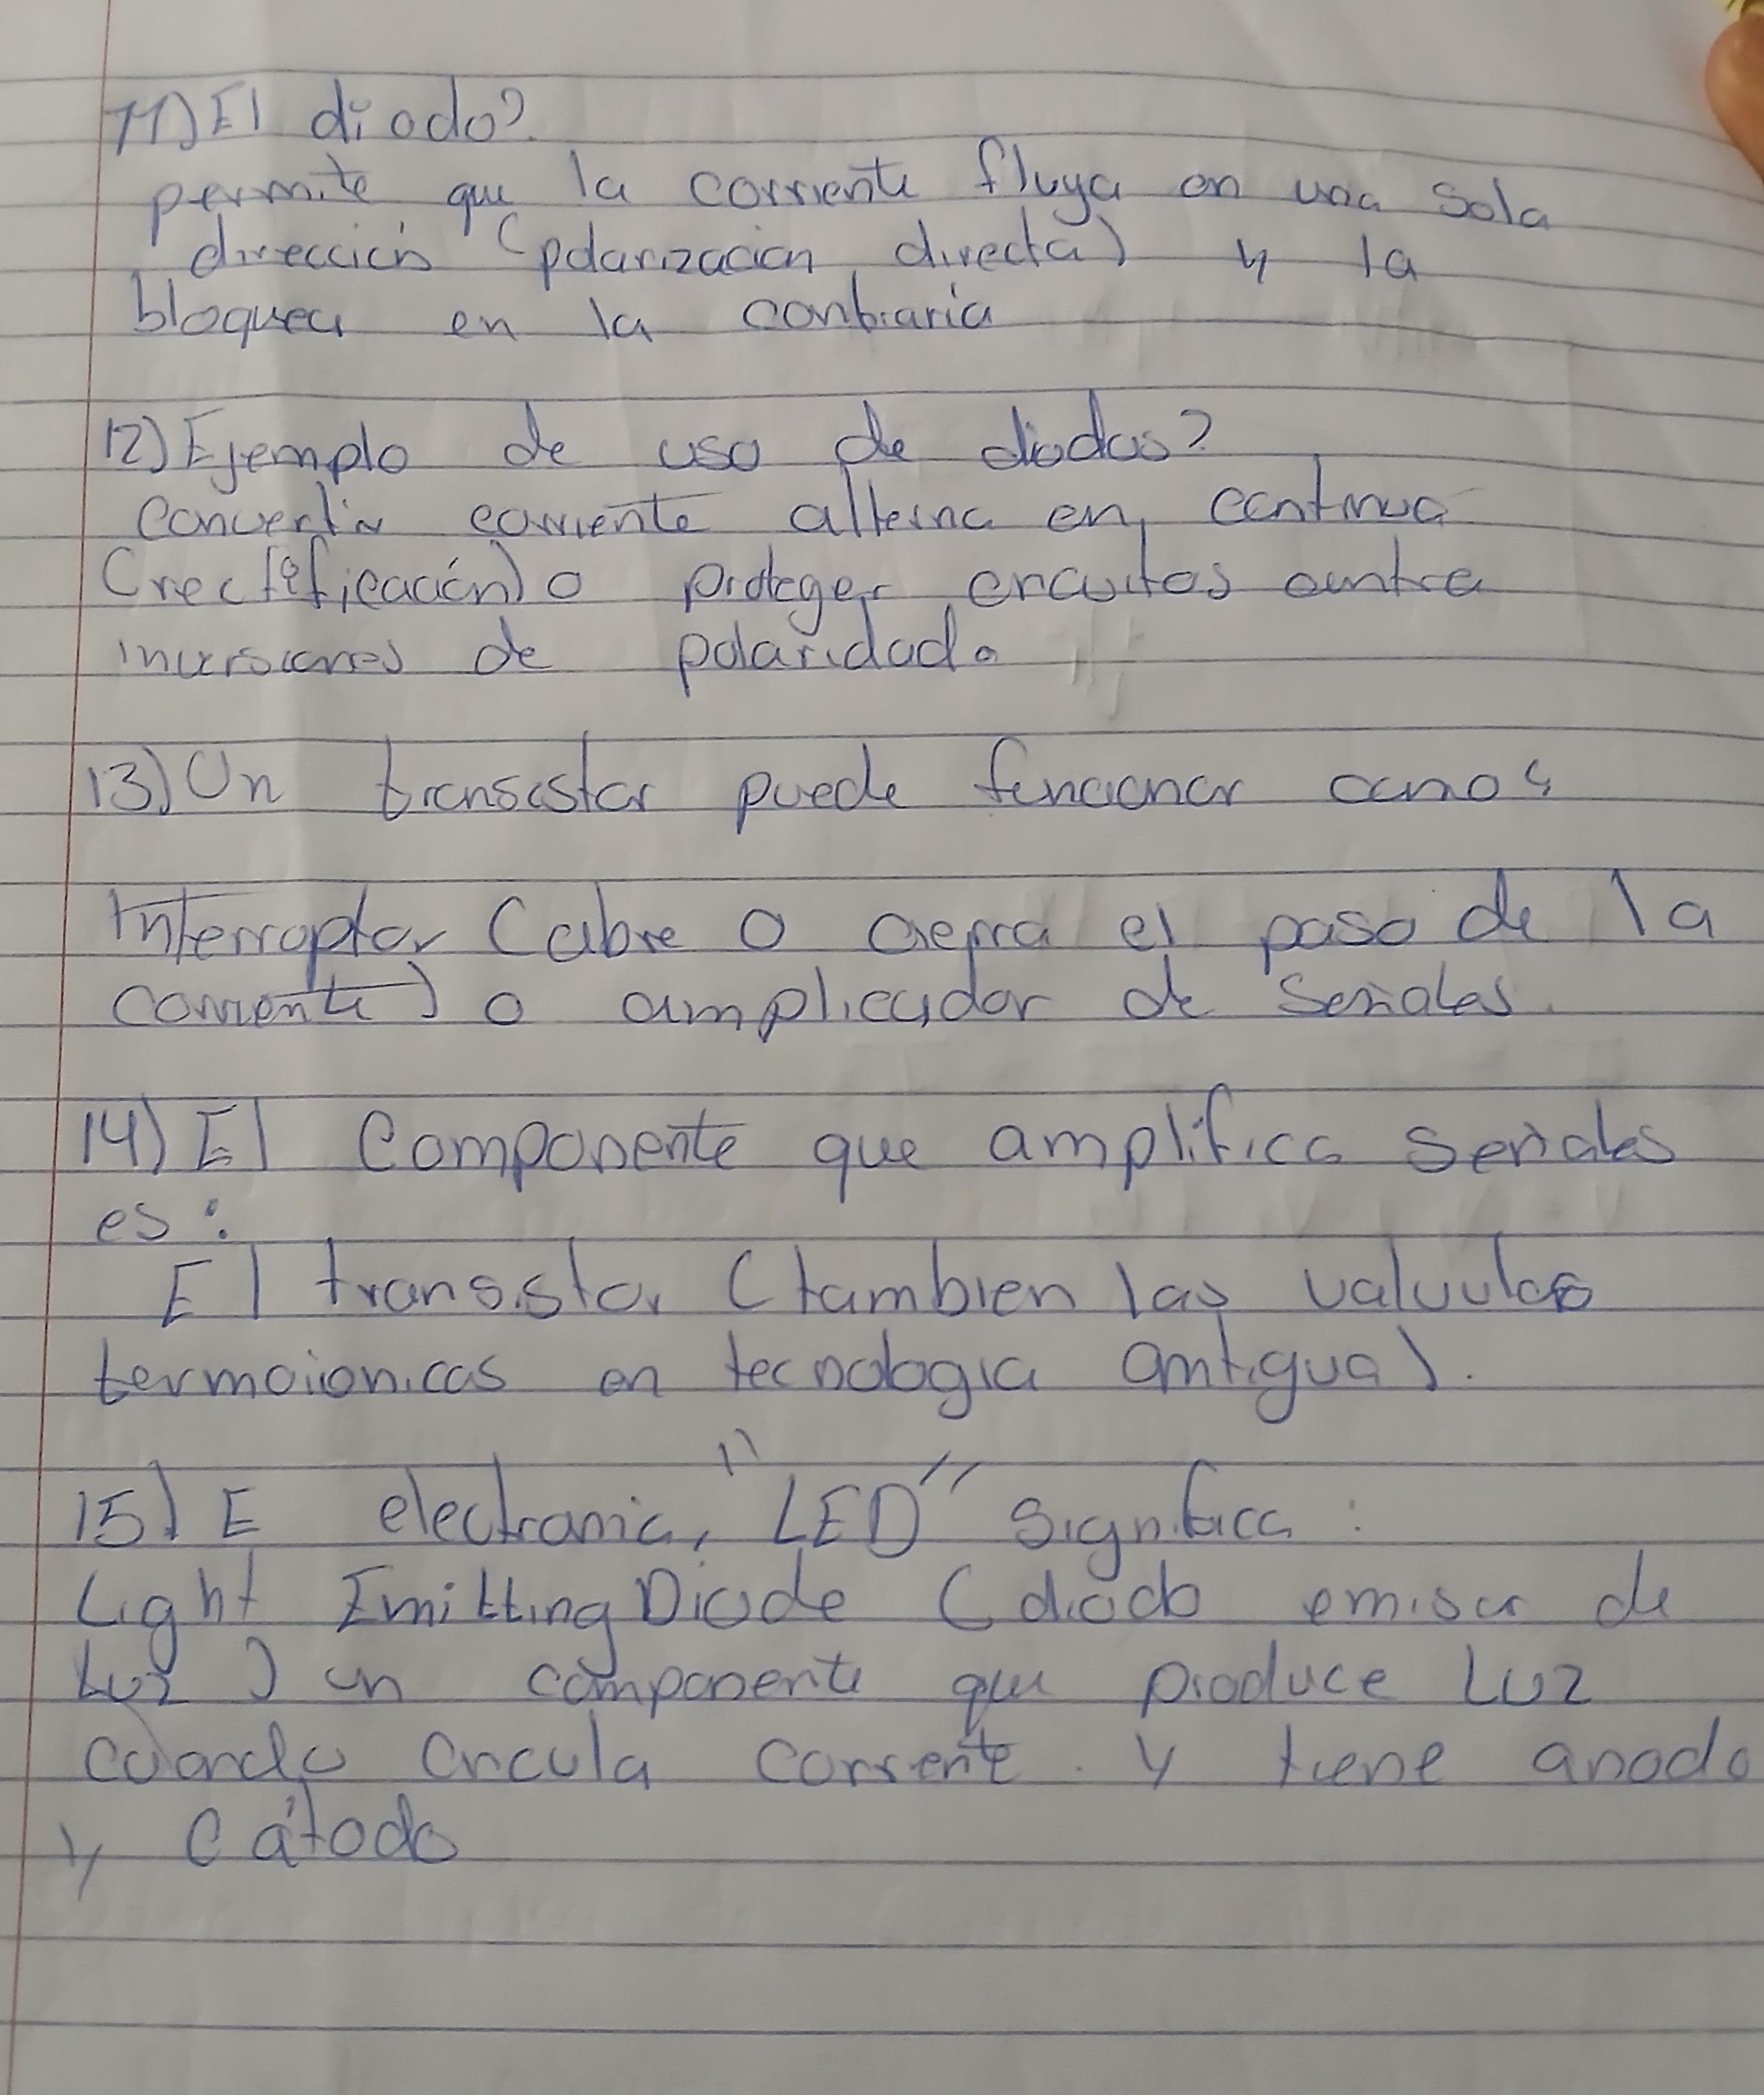 11) El diodo?
permite que la corriente fluya en una sola
dirección (polarización directa) y la
bloquea en la contraria
12) Ejemplo de uso de diodos?
Convertir corriente alterna en continua
(rectificación) o proteger circuitos contra
inversiones de polaridad.
13) Un transistor puede funcionar como:
Interruptor (abre o cierra el paso de la
corriente) o amplicador de señales.
14) El Componente que amplifica señales
es:
El transistor (tambien las valvulas
termoionicas en tecnologia antigua).
15) E electronica, "LED" significa:
Light Emitting Diode (diodo emisor de
Luz) un componente que produce Luz
cuando circula corriente. y tiene anodo
y cátodo